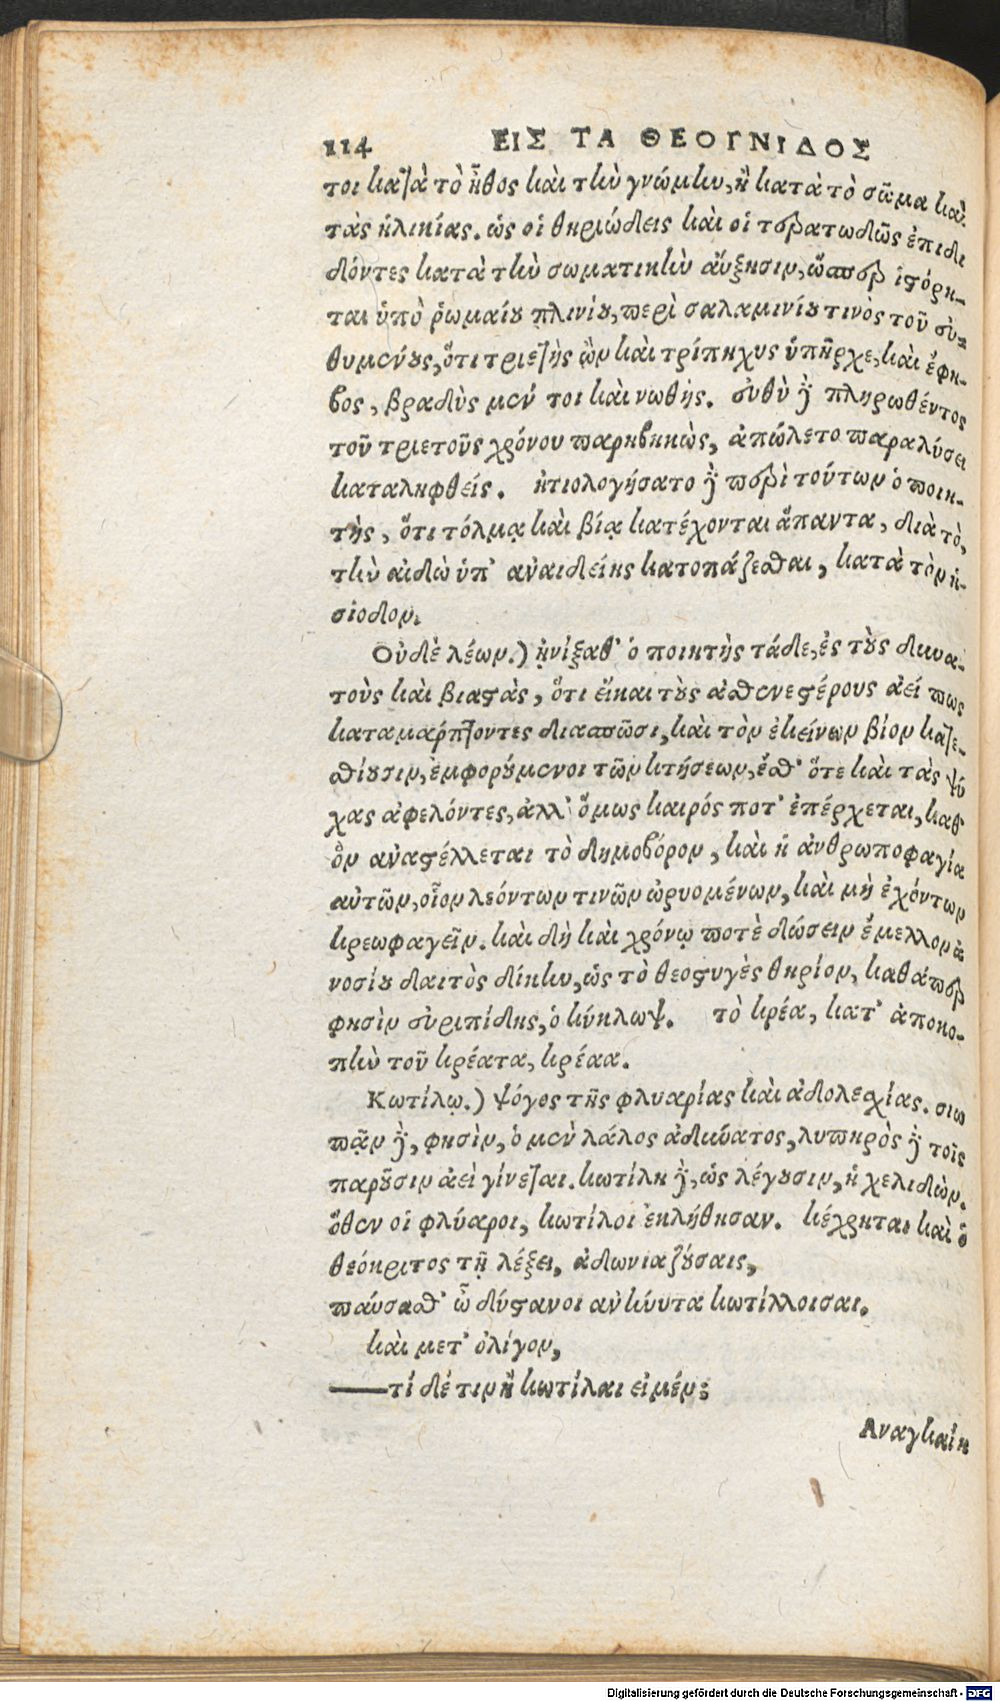 114 ΕΙΣ ΤΑ ΘΕΟΓΝΙΔΟΣ
τοι κατὰ τὸ ἦθος καὶ τὴν γνώμην, ἢ κατὰ τὸ σῶμα καὶ
τὰς ἡλικίας. ὡς οἱ θηριώδεις καὶ οἱ τερατωδῶς ἐπιδι
δόντες κατὰ τὴν σωματικὴν αὔξησιν, ὥσπερ ἱστόρη-
ται ὑπὸ ῥωμαίου πλινίου, περὶ σαλαμινίου τινὸς τοῦ εὐ-
θυμένους, ὅτι τριετὴς ὢν καὶ τρίπηχυς ὑπῆρχε, καὶ ἔφη-
βος, βραδὺς μέν τοι καὶ νωθής. εὐθὺ δὲ πληρωθέντος
τοῦ τριετοῦς χρόνου παρηβηκὼς, ἀπώλετο παραλύσει
καταληφθείς. ᾐτιολογήσατο δὲ περὶ τούτων ὁ ποιη-
τὴς, ὅτι τόλμᾳ καὶ βίᾳ κατέχονται ἅπαντα, διὰ τὸ,
τὴν αἰδὼ ὑπ' ἀναιδείης κατοπάζεσθαι, κατὰ τὸν ἡ-
σίοδον.
Οὐδὲ λέων.) ᾐνίξαθ' ὁ ποιητὴς τάδε, ἐς τοὺς δυνα-
τοὺς καὶ βιαστὰς, ὅτι εἴκαι τοὺς ἀσθενεστέρους ἀεί πως
καταμάρπτοντες διασπῶσι, καὶ τὸν ἐκείνων βίον κατε-
σθίουσιν, ἐμφορούμενοι τῶν κτήσεων, ἔσθ' ὅτε καὶ τὰς ψύ
χας ἀφελόντες, ἀλλ' ὅμως καιρός ποτ' ἐπέρχεται, καθ'
ὃν ἀναστέλλεται τὸ δημοβόρον, καὶ ἡ ἀνθρωποφαγία
αὐτῶν, οἷον λεόντων τινῶν ὠρυομένων, καὶ μὴ ἐχόντων
κρεωφαγεῖν. καὶ δὴ καὶ χρόνῳ ποτὲ δώσειν ἔμελλον ἀ
νοσίου δαιτὸς δίκην, ὡς τὸ θεοστυγὲς θηρίον, καθάπερ
φησὶν εὐριπίδης, ὁ κύκλωψ. τὸ κρέα, κατ' ἀποκο-
πὴν τοῦ κρέατα, κρέαα.
Κωτίλῳ.) ψόγος τῆς φλυαρίας καὶ ἀδολεσχίας. σιω
πᾷν δὲ, φησὶν, ὁ μὲν λάλος ἀδύνατος, λυπηρὸς δὲ τοῖς
παροῦσιν ἀεὶ γίνεται. κωτίλη δὲ, ὡς λέγουσιν, ἡ χελιδών.
ὅθεν οἱ φλύαροι, κωτίλοι ἐκλήθησαν. κέχρηται καὶ ὁ
θεόκριτος τῇ λέξει, ἀδωνιαζούσαις,
παύσασθ' ὦ δύστανοι ἀνκύυτα κωτίλλοισαι.
καὶ μετ' ὀλίγον,
——τί δέ τιν ἢ κωτίλαι εἰμέν;
Αναγκαίη